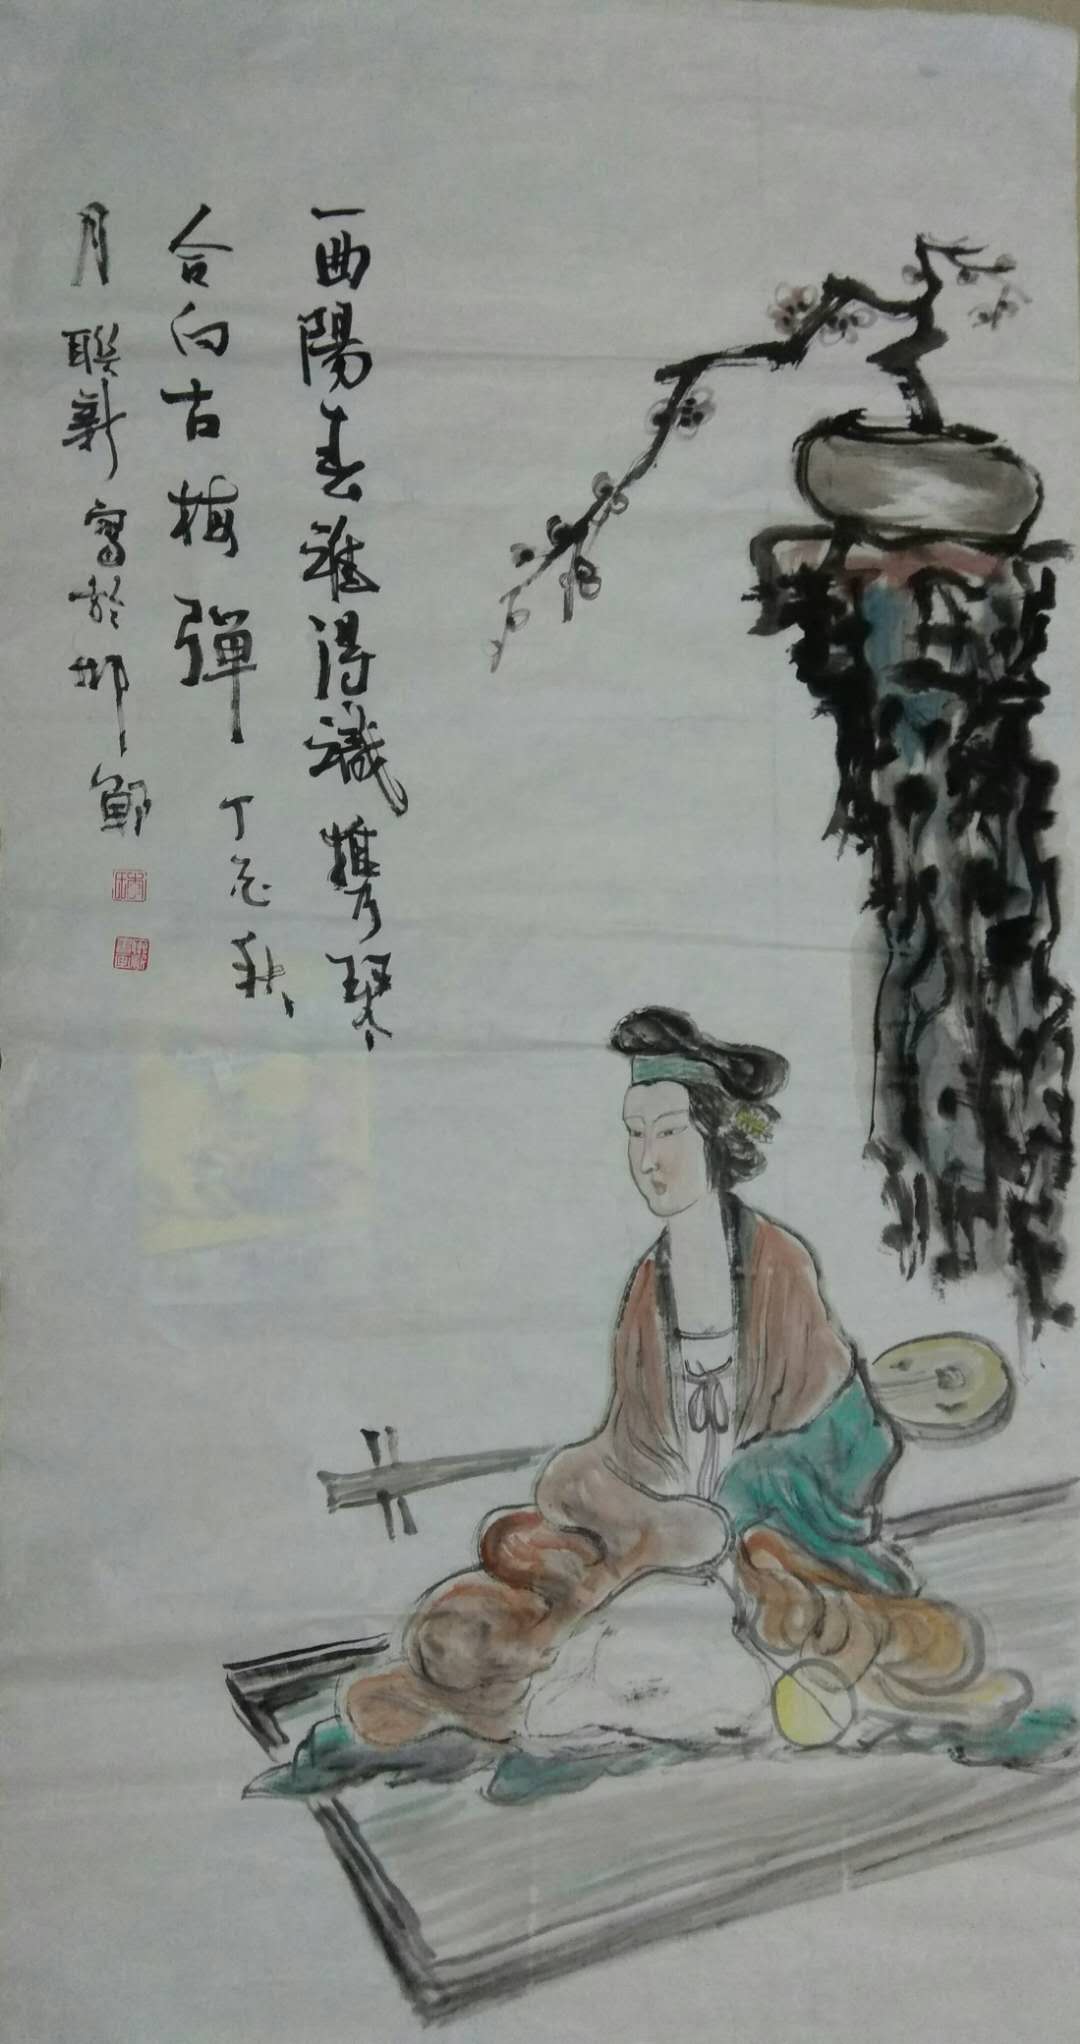 一曲陽春誰得識攜琴
合向古梅彈 丁 秋
月 聯新寫於邯鄲